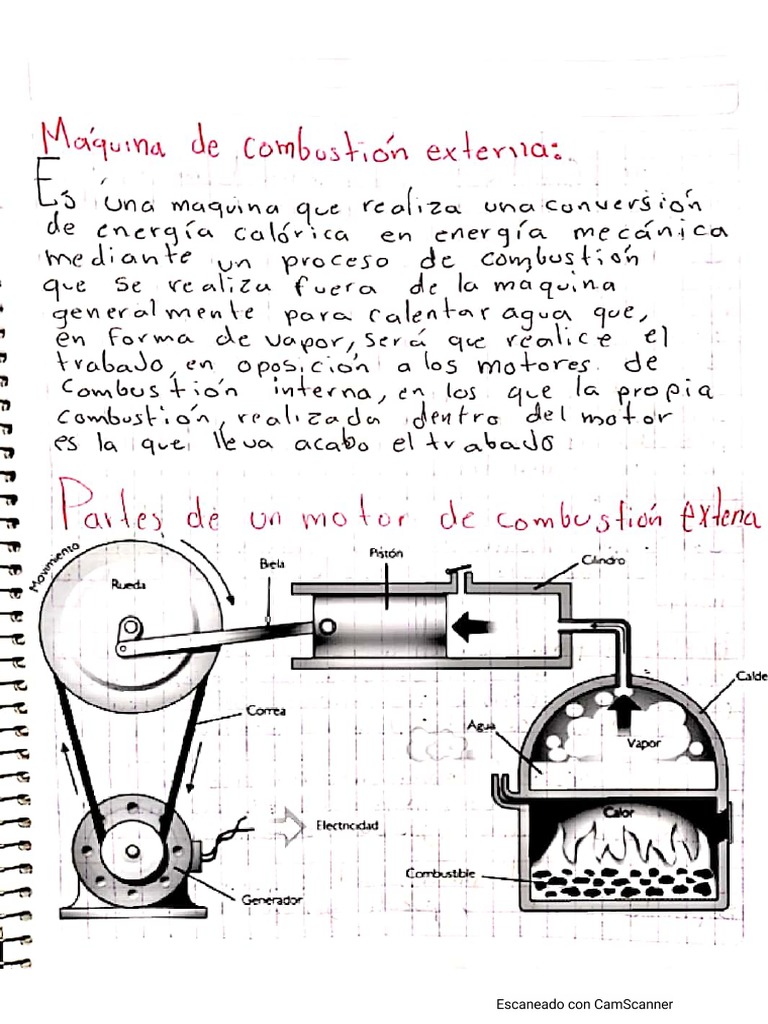 Máquina de combustión externa:
Es una maquina que realiza una conversión
de energía calórica en energía mecánica
mediante un proceso de combustión
que se realiza fuera de la maquina
generalmente para calentar agua que,
en forma de vapor, será que realice el
trabajo, en oposición a los motores de
combustión interna, en los que la propia
combustión, realizada dentro del motor
es la que lleva acabo el trabajo
Partes de un motor de combustión extena
Movimiento
Rueda
Biela
Pistón
Cilindro
Correa
Calde
Agua
Vapor
Electricidad
Calor
Combustible
Generador
Escaneado con CamScanner